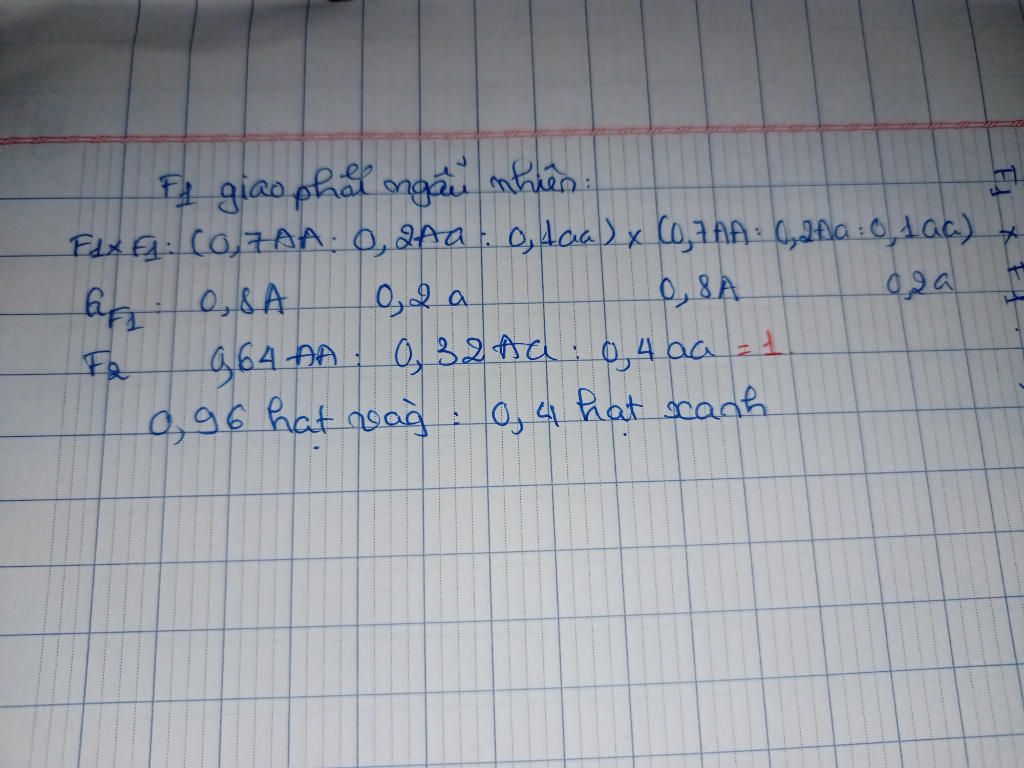 F1 giao phối ngẫu nhiên:
F1 x F1: (0,7AA : 0,2Aa : 0,1aa) x (0,7AA : 0,2Aa : 0,1aa)
GF1: 0,8A 0,2a 0,8A 0,2a
F2 0,64AA : 0,32Aa : 0,4aa = 1
0,96 hạt vàg : 0,4 hạt xanh